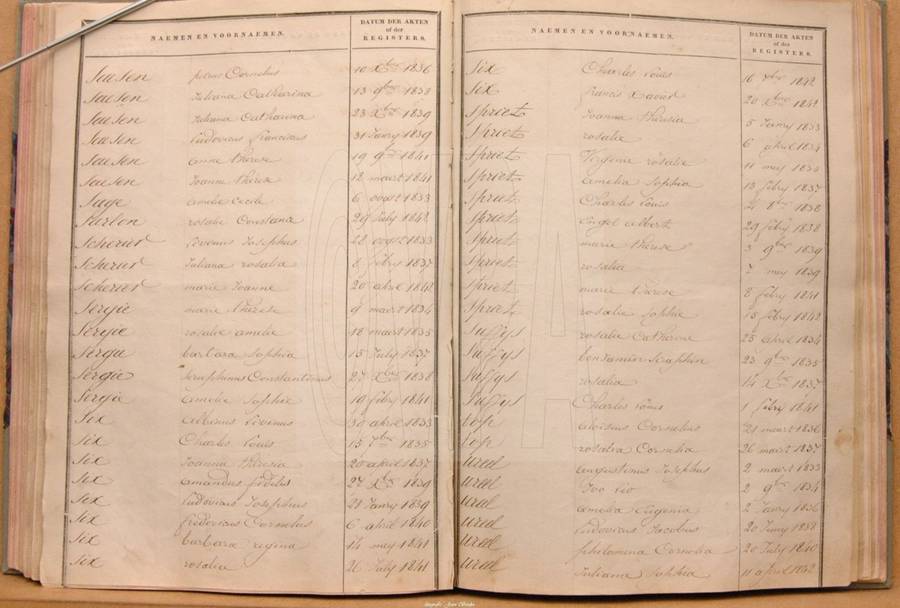 NAEMEN EN VOORNAEMEN.
DATUM DER AKTEN
of der
REGISTERS.
Saesen petrus Cornelius 10 Xbre 1836
Saesen Juliana Catharina 13 9bre 1838
Saesen Juliana Catharina 23 Xbre 1839
Saesen Ludovicus franciscus 31 Janry 1839
Saesen anne therese 19 9bre 1841
Saesen Joanne therese 12 maart 1841
Sage amelie Cecile 6 oogst 1833
Sarlon rosalie Constana 29 July 1842
Scherier Livenus Josephus 22 oogst 1833
Scherier Juliana rosalia 8 febry 1837
Scherier marie Joanne 20 april 1842
Sergie marie therese 9 maart 1834
Sergie rosalie amelie 18 maart 1835
Sergie barbara Sophia 15 July 1837
Sergie Seraphinus Constantinus 27 Xbre 1838
Sergie amelie Sophie 19 febry 1841
Six Albinus Livinus 30 april 1833
Six Charles Louis 15 7bre 1835
Six Joanna theresia 20 april 1837
Six amandus fidelis 27 Xbre 1839
Six Ludovicus Josephus 21 Janry 1839
Six fredericus Cornelius 6 april 1840
Six barbara regina 14 mey 1841
Six rosalie 26 July 1841
NAEMEN EN VOORNAEMEN.
DATUM DER AKTEN
of der
REGISTERS.
Six Charles Louis 16 7bre 1842
Six francis Xavier 20 Xbre 1842
Spriet Joanna theresia 5 Janry 1833
Spriet rosalie 6 april 1834
Spriet Virginie rosalie 11 mey 1834
Spriet amelia Sophia 13 febry 1837
Spriet Charles Louis 1838
Spriet Engel albert 29 febry 1838
Spriet marie therese 3 9bre 1839
Spriet rosalia 7 mey 1839
Spriet marie therese 8 febry 1841
Spriet rosalie Sophie 15 febry 1842
Suffys rosalie Catherine 25 april 1834
Suffys benjamin Seraphin 23 9bre 1835
Suffys rosalia 14 Xbre 1837
Suffys Charles Louis 1 febry 1841
top aloisius Cornelius 21 maart 1836
top rosalia Cornelia 26 maart 1837
ureel augustinus Josephus 2 maart 1833
ureel 2 9bre 1834
ureel amelia Eugenia 2 Janry 1836
ureel Ludovicus Jacobus 20 1838
ureel philomena Cornelia 20 July 1840
ureel Juliana Sophia 11 april 1842